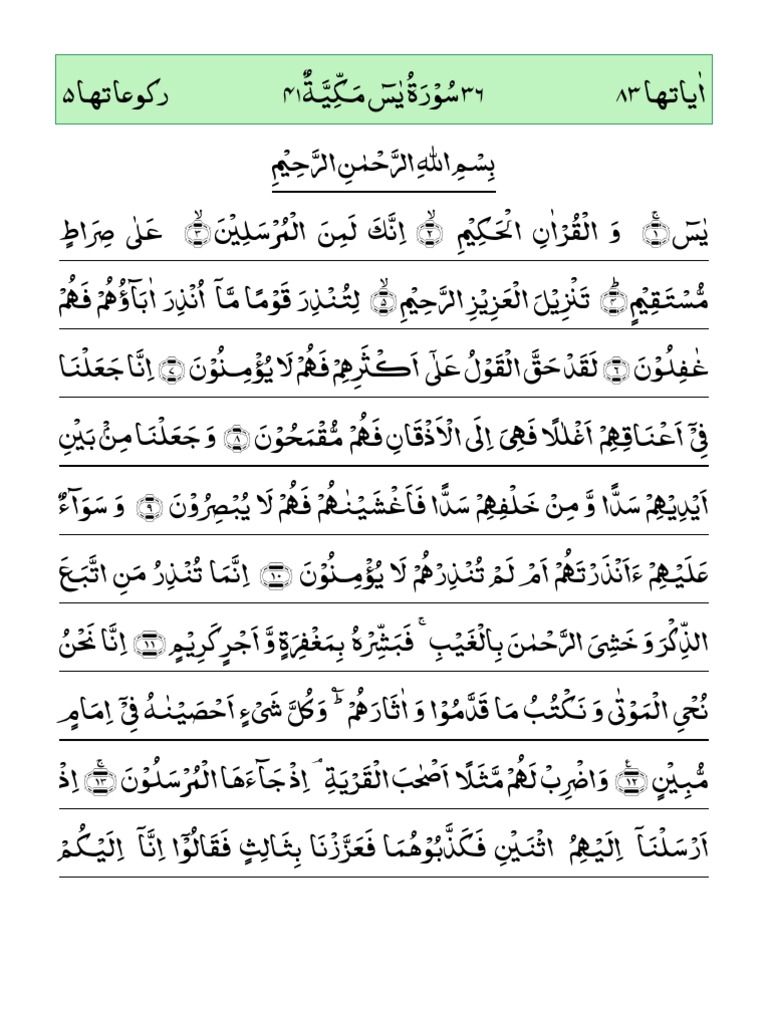 اٰیاتها ٨٣ ٣٦ سُوْرَةُ یٰسٓ مَكِّیَّةٌ ٤١ ركوعاتها ٥
بِسْمِ اللّٰهِ الرَّحْمٰنِ الرَّحِیْمِ
یٰسٓ ۚ﴿١﴾ وَ الْقُرْاٰنِ الْحَكِیْمِ ۙ﴿٢﴾ اِنَّكَ لَمِنَ الْمُرْسَلِیْنَ ۙ﴿٣﴾ عَلٰی صِرَاطٍ
مُّسْتَقِیْمٍ ؕ﴿٤﴾ تَنْزِیْلَ الْعَزِیْزِ الرَّحِیْمِ ۙ﴿٥﴾ لِتُنْذِرَ قَوْمًا مَّاۤ اُنْذِرَ اٰبَآؤُهُمْ فَهُمْ
غٰفِلُوْنَ ﴿٦﴾ لَقَدْ حَقَّ الْقَوْلُ عَلٰۤی اَكْثَرِهِمْ فَهُمْ لَا یُؤْمِنُوْنَ ﴿٧﴾ اِنَّا جَعَلْنَا
فِیْۤ اَعْنَاقِهِمْ اَغْلٰلًا فَهِیَ اِلَی الْاَذْقَانِ فَهُمْ مُّقْمَحُوْنَ ﴿٨﴾ وَ جَعَلْنَا مِنْۢ بَیْنِ
اَیْدِیْهِمْ سَدًّا وَّ مِنْ خَلْفِهِمْ سَدًّا فَاَغْشَیْنٰهُمْ فَهُمْ لَا یُبْصِرُوْنَ ﴿٩﴾ وَ سَوَآءٌ
عَلَیْهِمْ ءَاَنْذَرْتَهُمْ اَمْ لَمْ تُنْذِرْهُمْ لَا یُؤْمِنُوْنَ ﴿١٠﴾ اِنَّمَا تُنْذِرُ مَنِ اتَّبَعَ
الذِّكْرَ وَ خَشِیَ الرَّحْمٰنَ بِالْغَیْبِ ۚ فَبَشِّرْهُ بِمَغْفِرَةٍ وَّ اَجْرٍ كَرِیْمٍ ﴿١١﴾ اِنَّا نَحْنُ
نُحْیِ الْمَوْتٰی وَ نَكْتُبُ مَا قَدَّمُوْا وَ اٰثَارَهُمْ ؕؔ وَ كُلَّ شَیْءٍ اَحْصَیْنٰهُ فِیْۤ اِمَامٍ
مُّبِیْنٍ ﴿١٢﴾ وَ اضْرِبْ لَهُمْ مَّثَلًا اَصْحٰبَ الْقَرْیَةِ ۘ اِذْ جَآءَهَا الْمُرْسَلُوْنَ ۚ﴿١٣﴾ اِذْ
اَرْسَلْنَاۤ اِلَیْهِمُ اثْنَیْنِ فَكَذَّبُوْهُمَا فَعَزَّزْنَا بِثَالِثٍ فَقَالُوْۤا اِنَّاۤ اِلَیْكُمْ